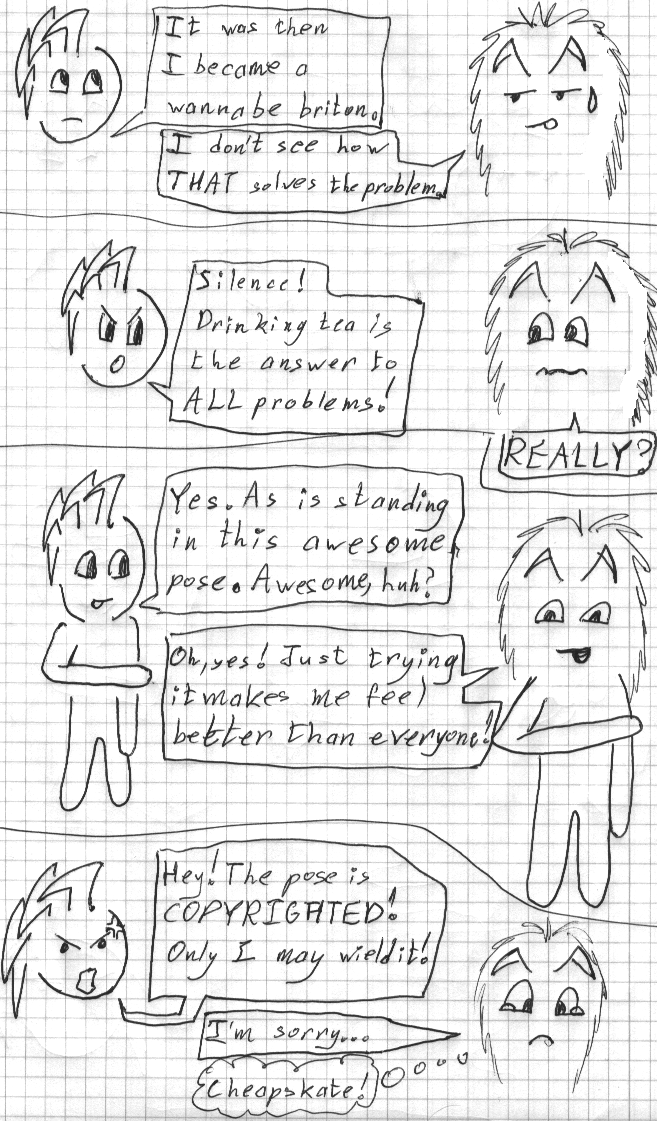 It was then
I became a
wannabe briton.
I don't see how
THAT solves the problem.
Silence!
Drinking tea is
the answer to
ALL problems!
REALLY?
Yes. As is standing
in this awesome
pose. Awesome, huh?
Oh, yes! Just trying
it makes me feel
better than everyone!
Hey! The pose is
COPYRIGHTED!
Only I may wield it!
I'm sorry...
Cheapskate!